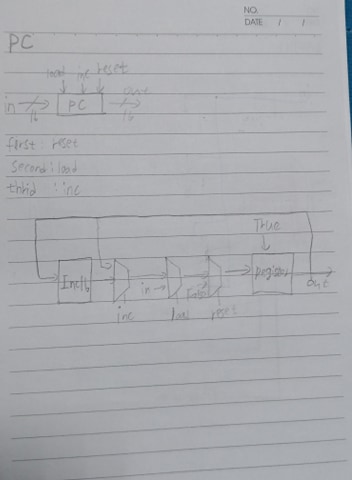 NO.
DATE / /
PC
load inc reset
in 16 PC 16
first : reset
second : load
thrid : inc
True
Inc16 in False register out
inc load reset